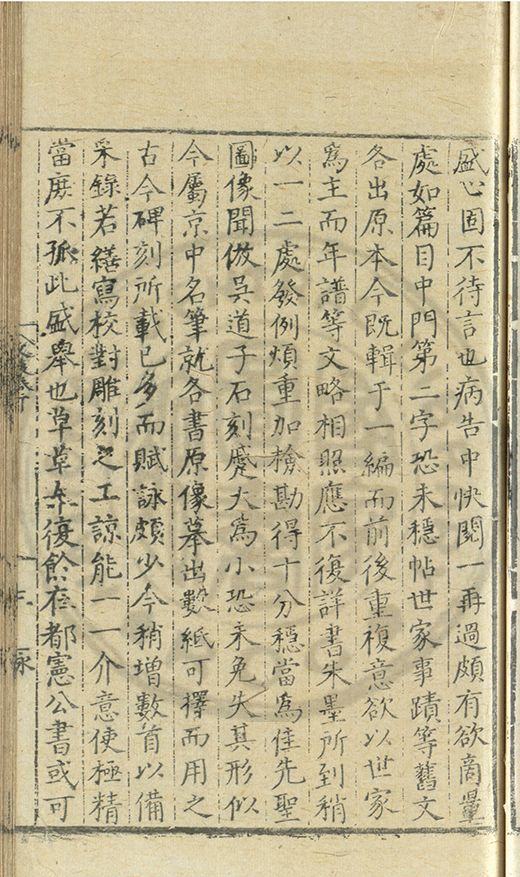 盛心固不待言也病告中快閱一再過頗有欲商量
處如篇目中門第二字恐未穩帖世家事蹟等舊文
各出原本今既輯于一編而前後重複意欲以世家
為主而年譜等文略相照應不復詳書朱墨所到稍
以一二處發例煩重加檢勘得十分穩當為佳先聖
圖像聞倣吳道子石刻蹙大為小恐未免失其形似
今屬京中名筆就各書原像摹出數紙可擇而用之
古今碑刻所載已多而賦詠頗少今稍增數首以備
采錄若繕寫校對雕刻之工諒能一一介意使極精
當庶不孤此盛舉也草草奉復餘在都憲公書或可